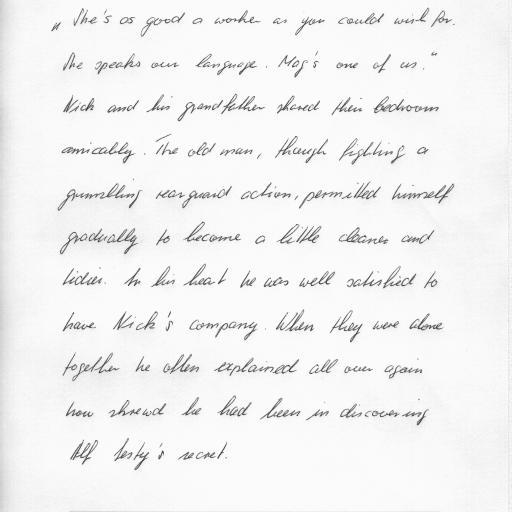 „She's as good a worker as you could wish for.
She speaks our language. Mog's one of us."
Nick and his grandfather shared their bedroom
amicably. The old man, though fighting a
grumbling rearguard action, permitted himself
gradually to become a little cleaner and
tidier. In his heart he was well satisfied to
have Nick's company. When they were alone
together he often explained all over again
how shrewd he had been in discovering
Alf Testy's secret.